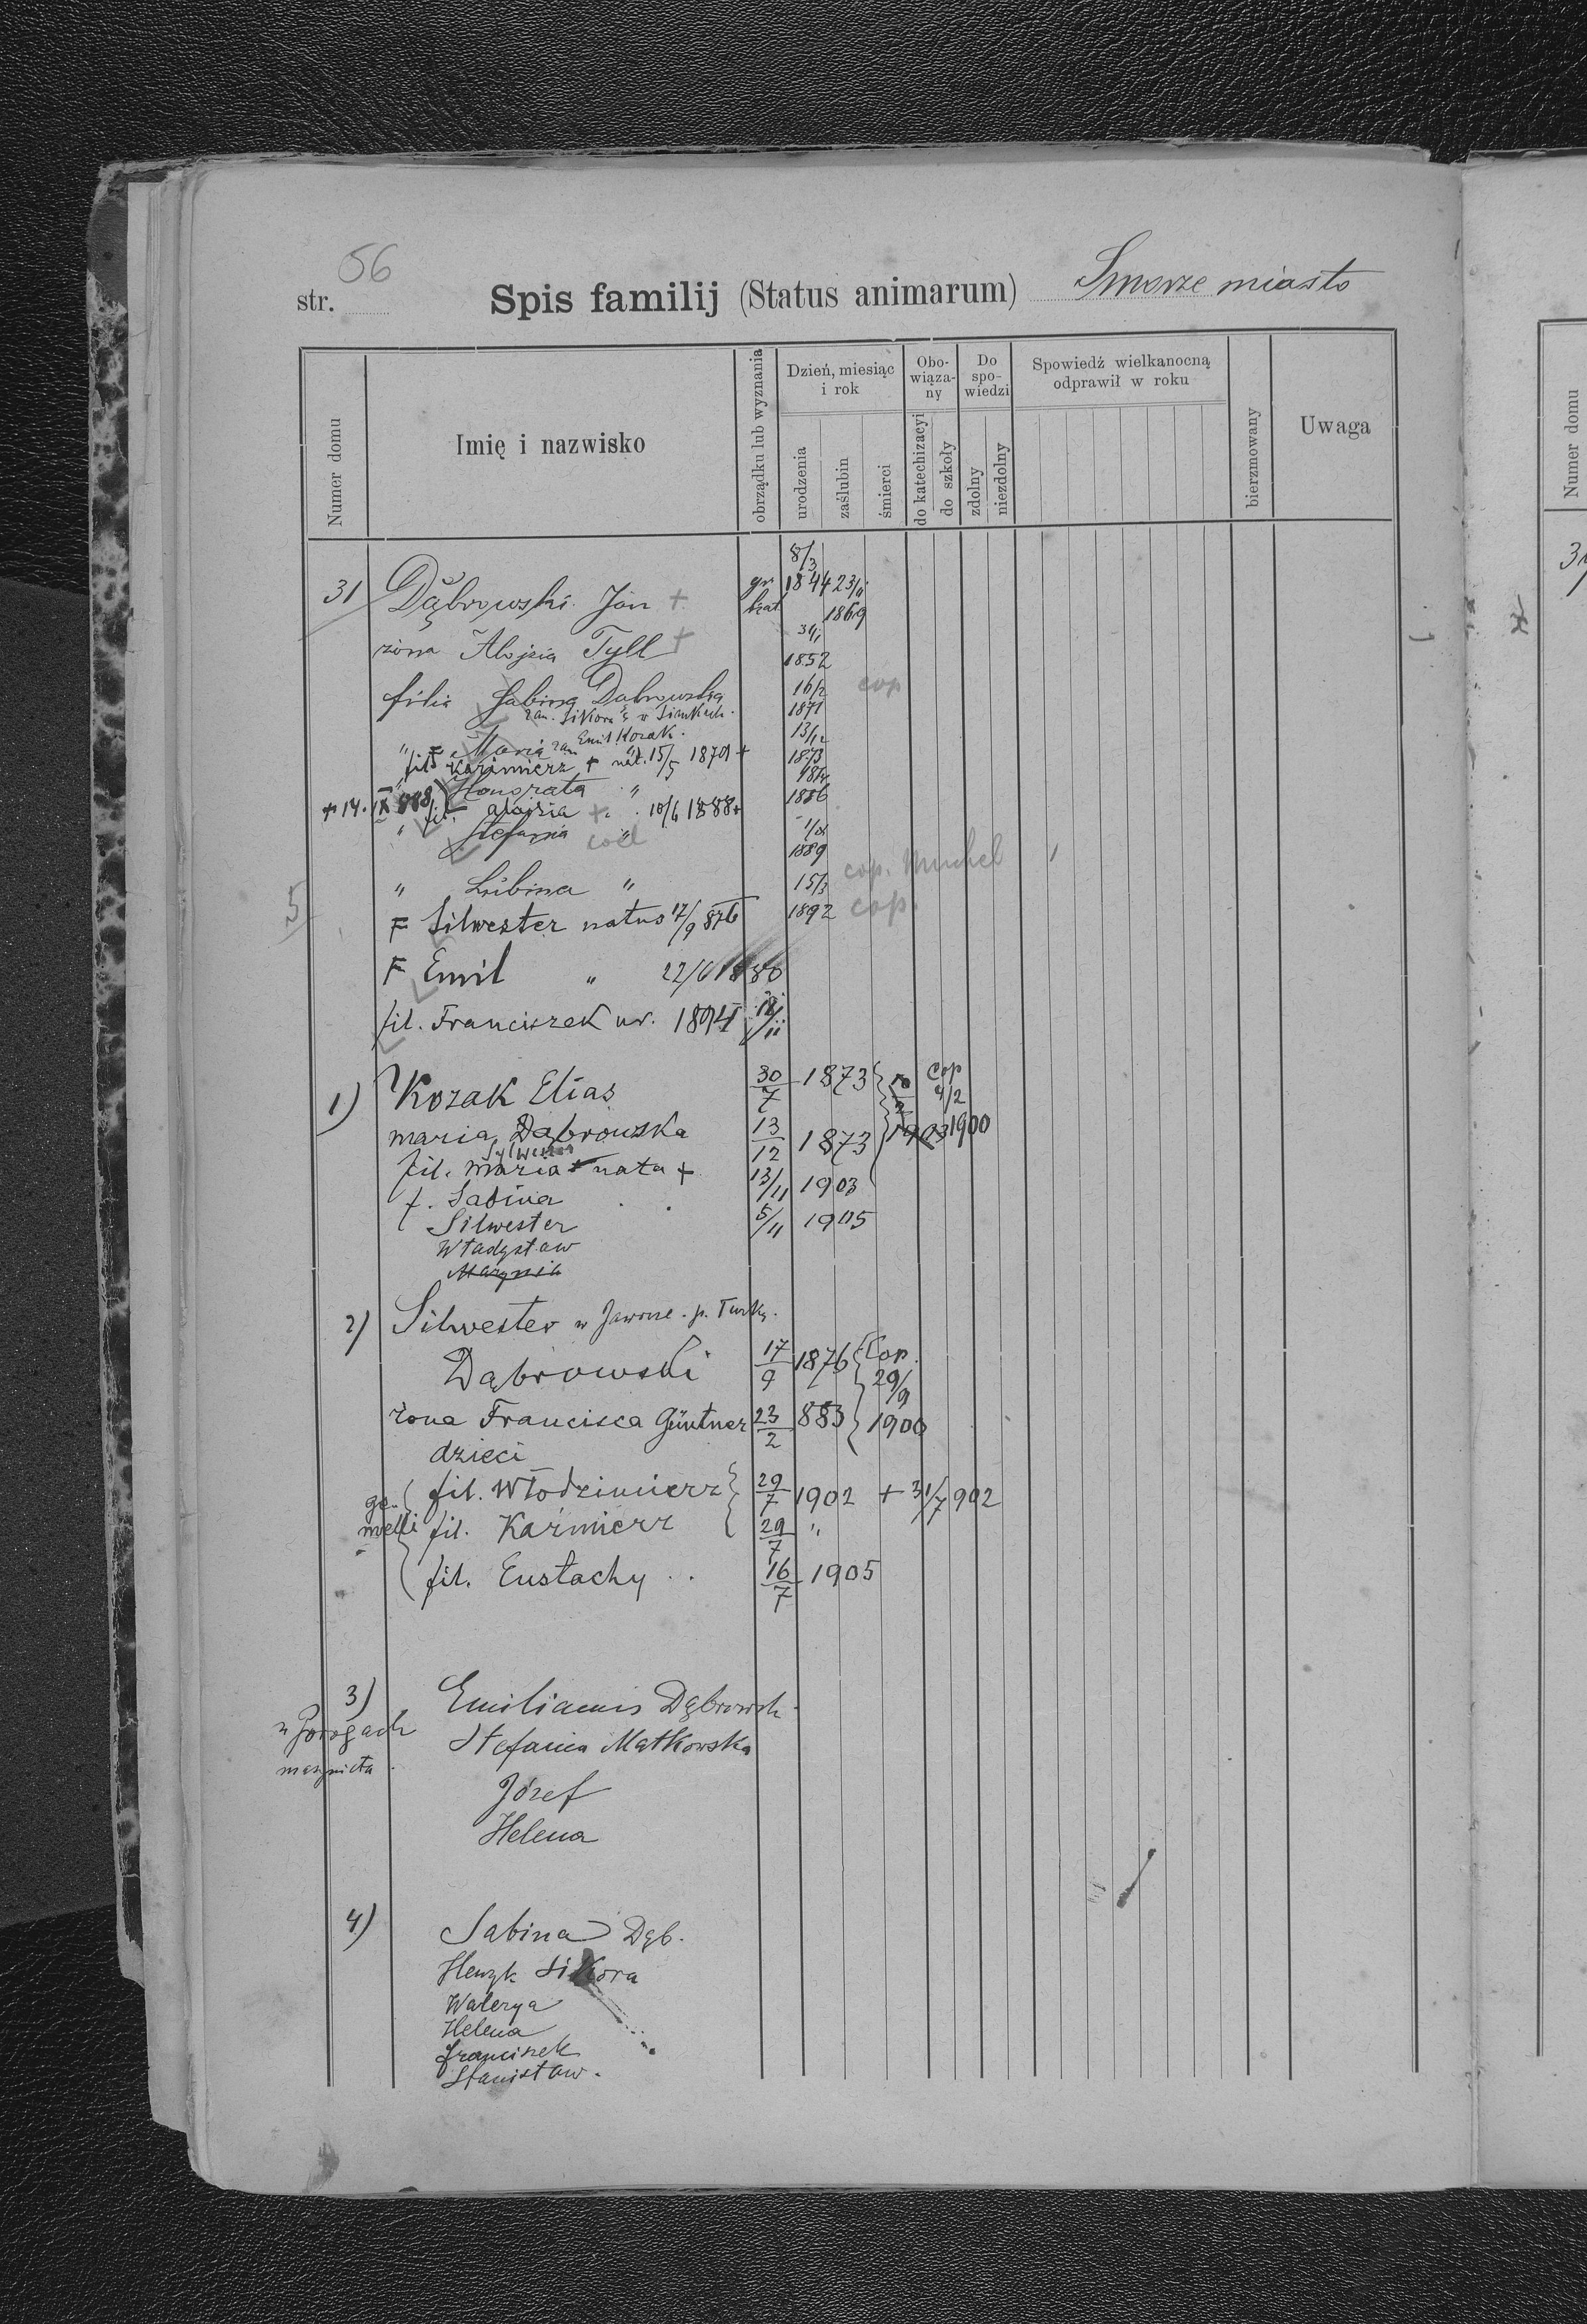 56
str.
Spis familij (Status animarum) Smorze miasto
Numer domu
Imię i nazwisko
obrządku lub wyznania
Dzień, miesiąc i rok
urodzenia
zaślubin
śmierci
Obo-wiąza-ny
do katechizacyi
do szkoły
Do spo-wiedzi
zdolny
niezdolny
Spowiedź wielkanocną odprawił w roku
bierzmowany
Uwaga
Numer domu
31 Dąbrowski Jan + gr 8/3 1844 23/11
kat 1869
żona Alojzia Tyll + 1852
filia Sabina Dąbrowska 16/2 1871 cop
zam. Sikora w Siankach.
" F Maria zam Emil Kozak. 13/12 1873
fil Kazimierz + nat. 15/5 1879 +
" Honorata " 1886
+ 14. IX 888 fil. aloizia + 10/6 1888 +
" Stefania " coel 1889
" Lubina " 15/3 1892 cop.
5
F Silwester natus 17/9 876
F Emil " 22/6 1880
fil. Franciszek ur. 1894
1) Kozak Elias 30/7 1873 cop 4/2 1900
maria Dąbrowska 13/12 1873 1903
Sylwester
fil. maria + nata + 13/11 1903
f. Sabina 5/11 1905
Silwester
Władysław
Marynia
2) Silwester w Jaworze. p. Turka.
Dąbrowski 17/9 1876 Cop. 29/9 1900
żona Francisca Güntner 23/2 883
dzieci
ge-melli
fil. Włodzimierz 29/7 1902 + 31/7 902
fil. Kazimierz 29/7 "
fil. Eustachy 16/7 1905
3) Emilianus Dąbrowsk
Stefania Matkowska
Józef
Helena
4) Sabina Dąb.
Henryk Sikora
Walerya
Helena
Franciszek
Stanisław.